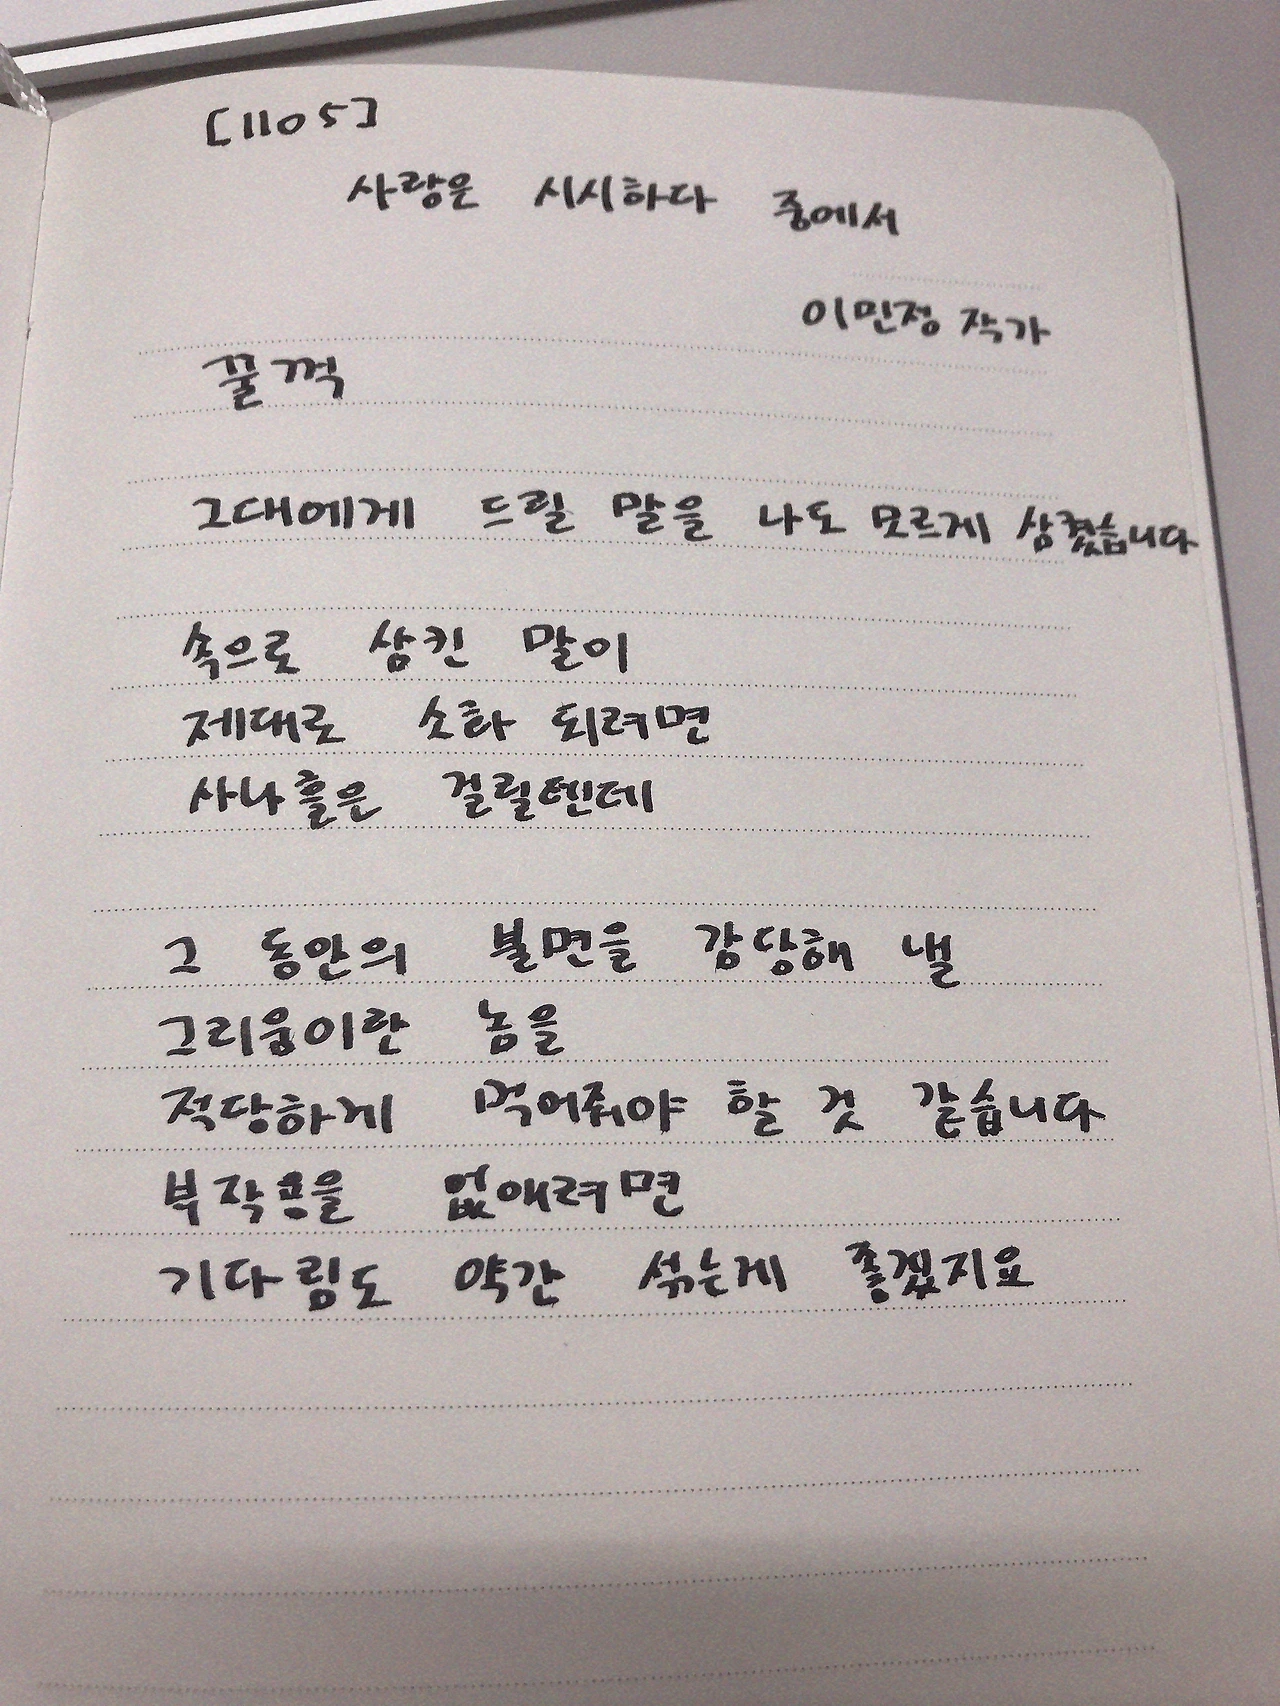 [1105]
사랑은 시시하다 중에서
이민정 작가
꿀꺽
그대에게 드릴 말을 나도 모르게 삼켰습니다
속으로 삼킨 말이
제대로 소화 되려면
사나흘은 걸릴텐데
그 동안의 불면을 감당해 낼
그리움이란 놈을
적당하게 먹어줘야 할 것 같습니다
부작용을 없애려면
기다림도 약간 섞는게 좋겠지요